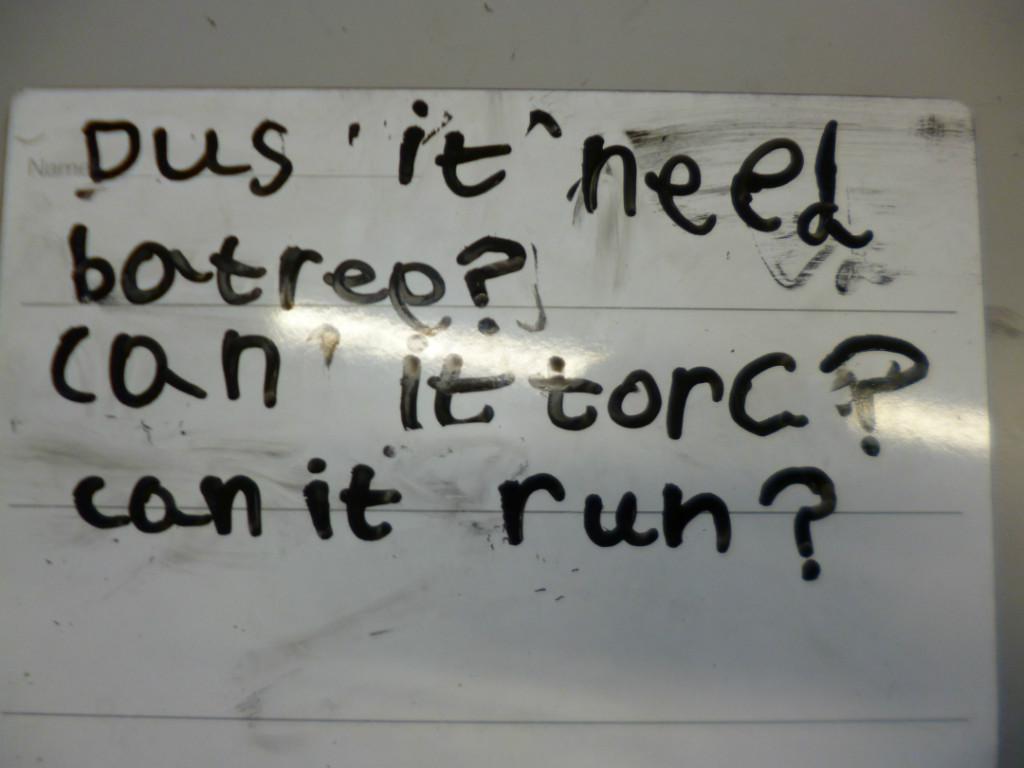 Name
Dus it need
batree?
can it torc?
can it run?